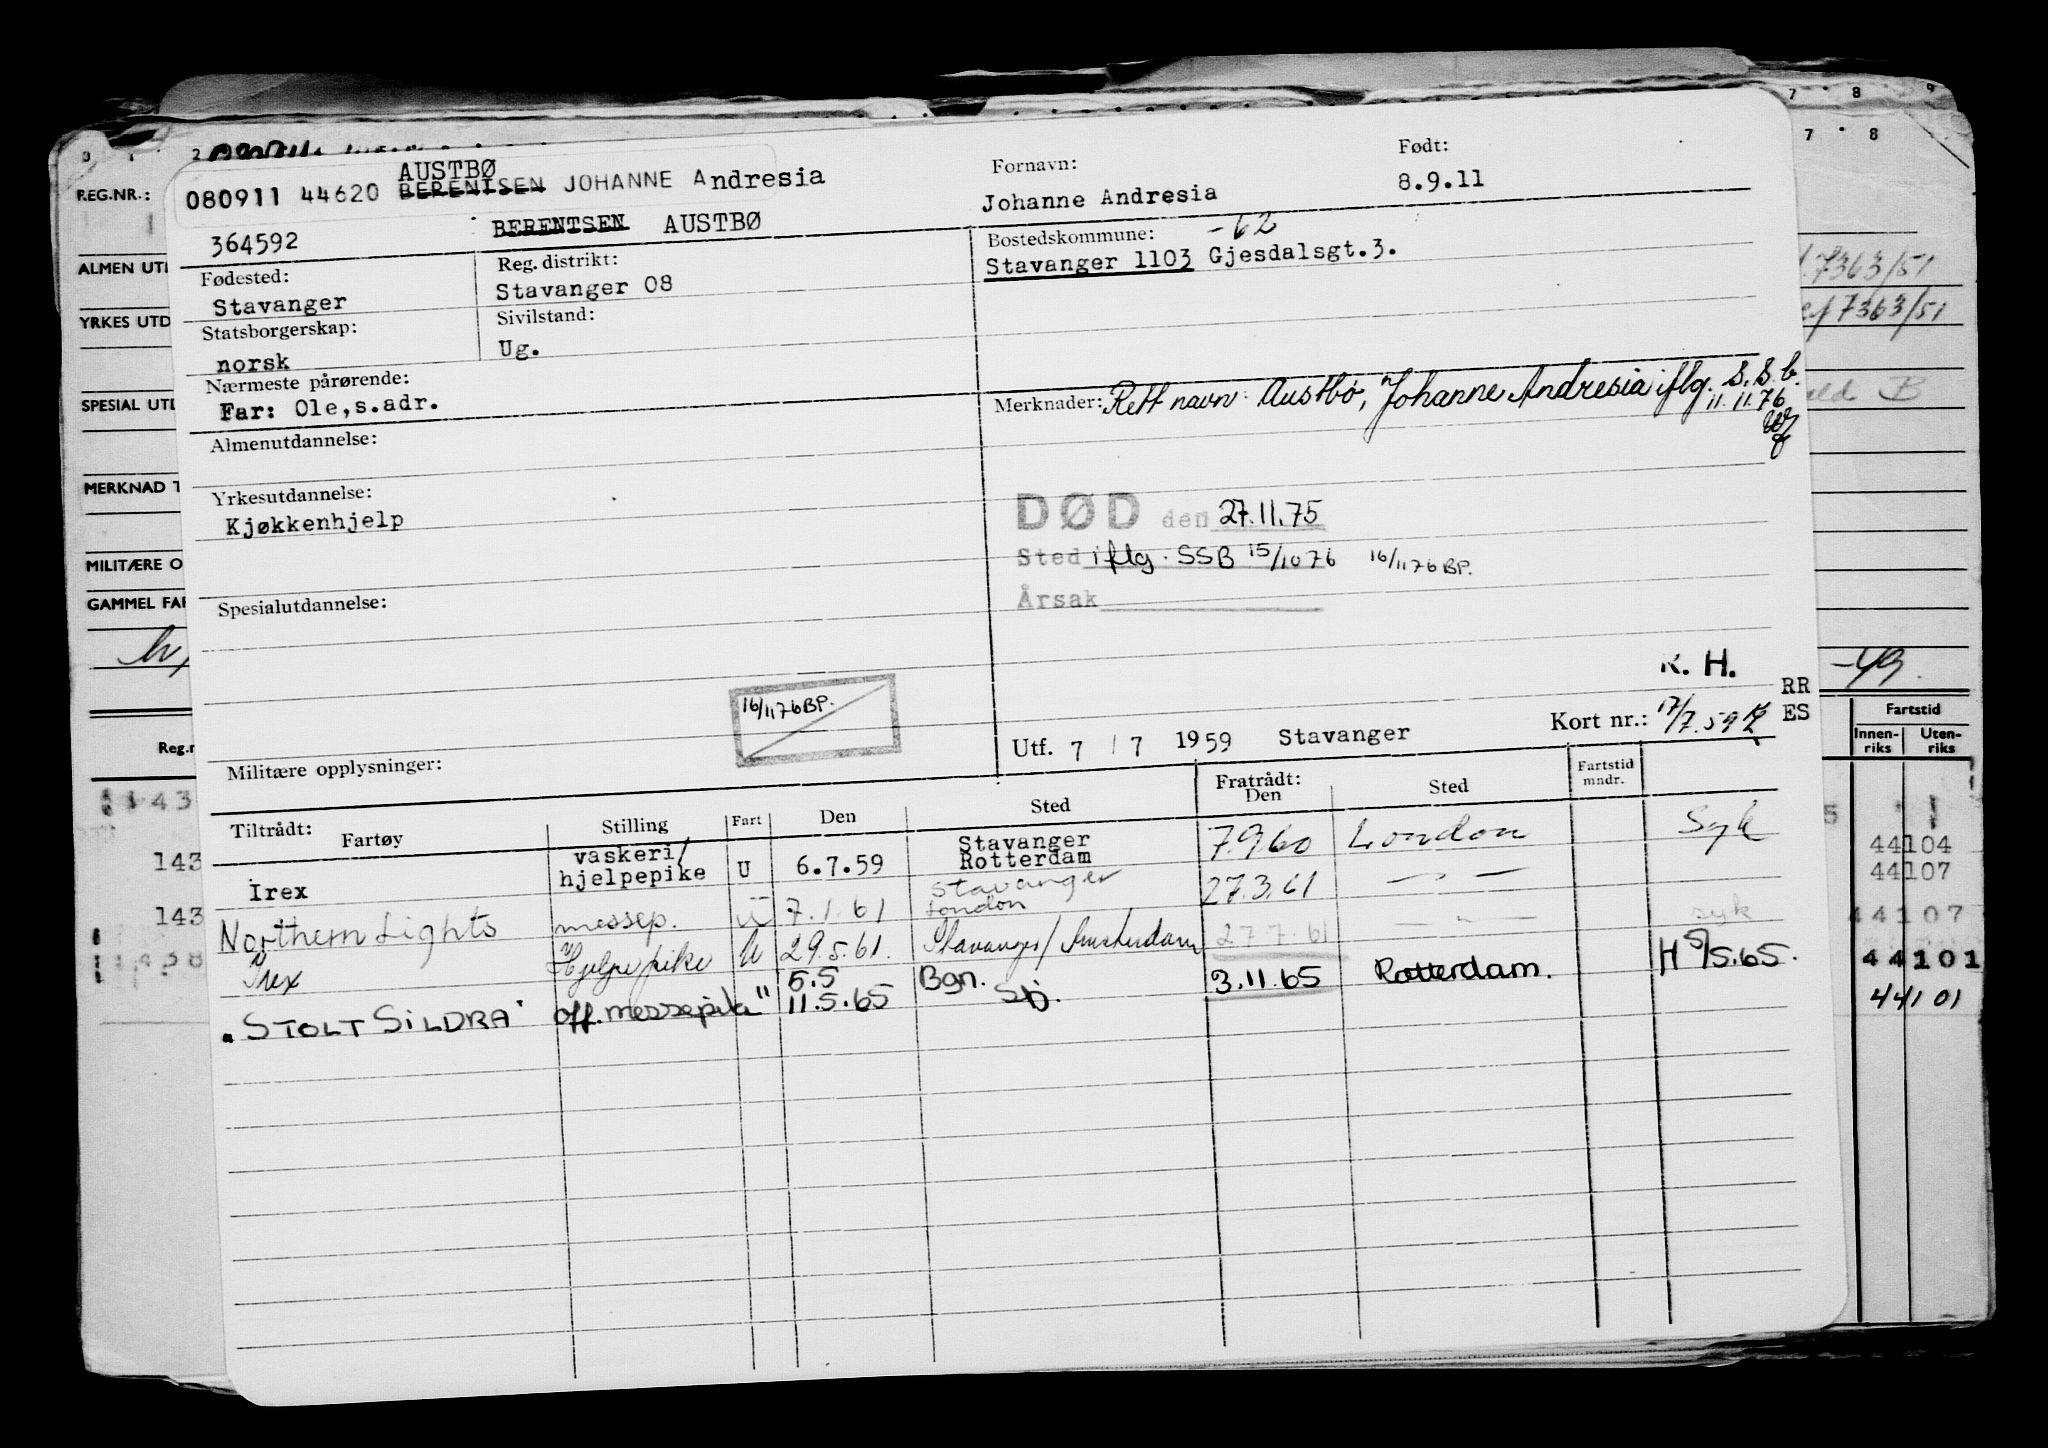 7 8 9
0 1 2 7 8
REG.NR.:
AUSTBØ
080911 44620 BERENTSEN JOHANNE Andresia
364592 BERENTSEN AUSTBØ
Fornavn:
Johanne Andresia
Født:
8.9.11
ALMEN UTD
YRKES UTD
SPESIAL UTD
MERKNAD T
MILITÆRE O
GAMMEL FAR
Fødested:
Stavanger
Reg. distrikt:
Stavanger 08
Bostedskommune: -62
Stavanger 1103 Gjesdalsgt.3.
7363/51
7363/51
Statsborgerskap:
norsk
Sivilstand:
Ug.
Nærmeste pårørende:
Far: Ole,s.adr.
Merknader: Rett navn: Austbø, Johanne Andresia iflg. S.S.b.
11.11.76
B
Almenutdannelse:
Yrkesutdannelse:
Kjøkkenhjelp
DØD den 27.11.75
Sted iflg. SSB 15/10 76 16/11 76 BP.
Årsak
Spesialutdannelse:
16/11 76 BP.
R. H.
-49.
RR
ES
Militære opplysninger:
Utf. 7 / 7 1959 Stavanger
Kort nr.: 17/7.59
Reg.n
Fartstid
Innen-
riks
Uten-
riks
Tiltrådt:
Fartøy
Stilling
Fart
Den
Sted
Fratrådt:
Den
Sted
Fartstid
mndr.
143
Irex vaskeri/ hjelpepike U 6.7.59 Stavanger Rotterdam 7.9.60 London Syk
44104
44107
143
Northern Lights messep. U 7.1.61 Stavanger London 27.3.61 — " —
143
Irex Hjelpepike U 29.5.61. Stavanger/Amsterdam 27.7.61 — " — syk
44107
"STOLT SILDRA" off. messepike " 5.5 11.5.65 Bgn. Sbj. 3.11.65 Rotterdam. H 5/5.65.
44101
44101